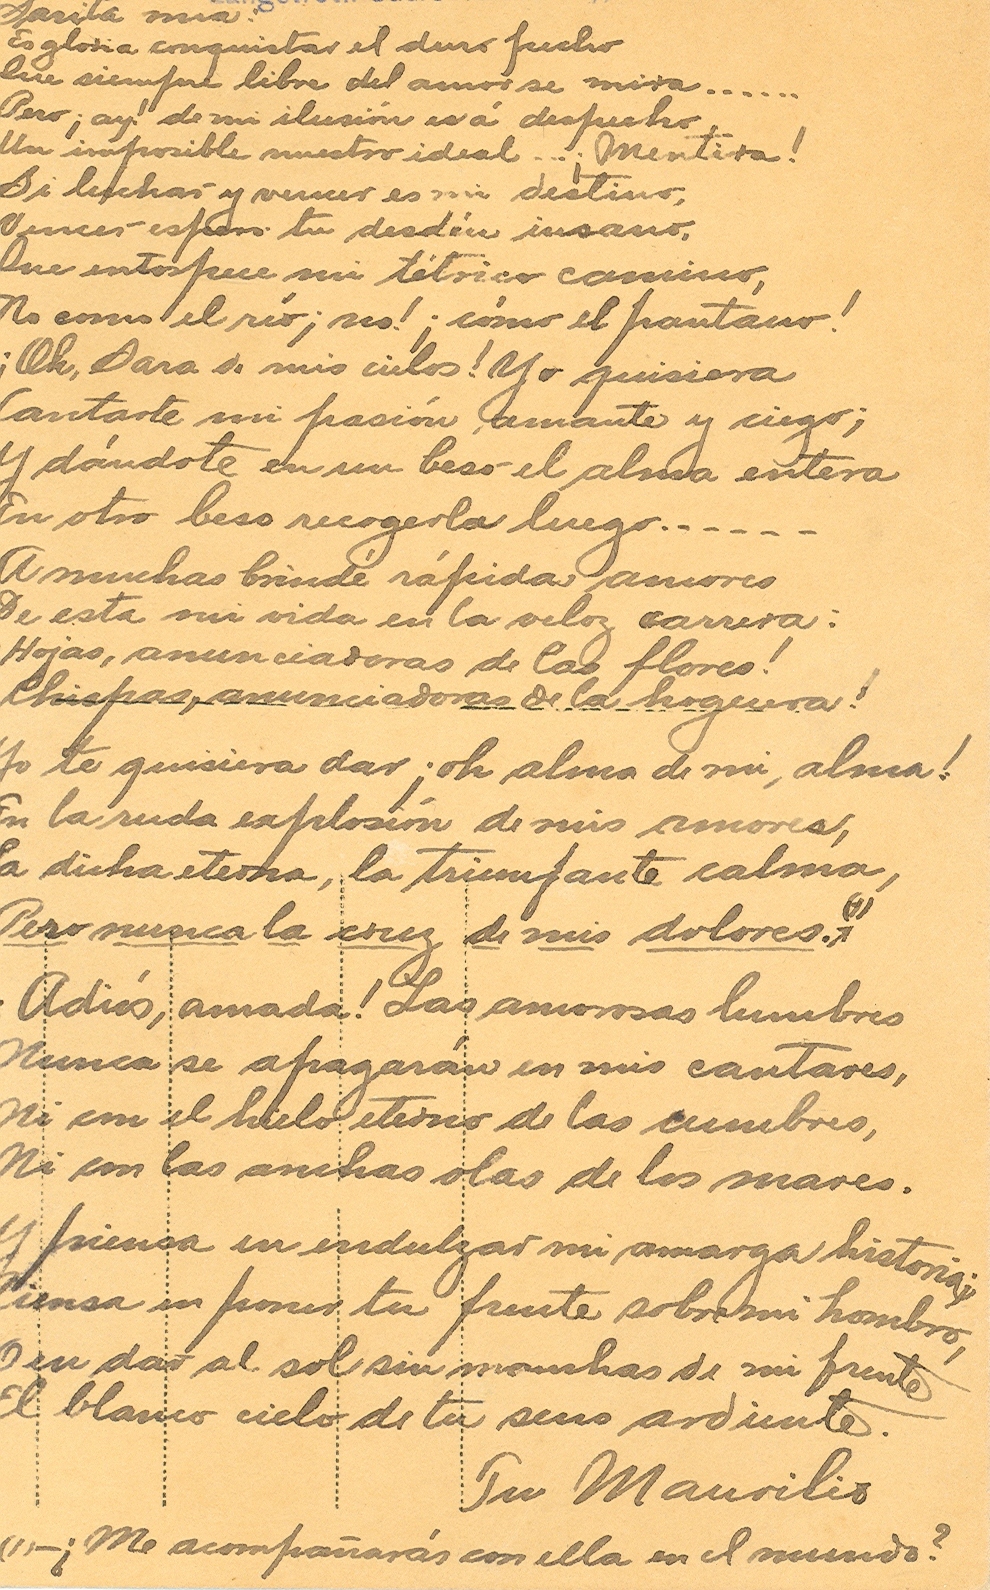 Sarita mia:
Es gloria conquistar el duro pecho
Que siempre libre del amor se mira......
Pero ¡ay! de mi ilusión está despecho,
Un imposible nuestro ideal...¡Mentira!
Si luchar y vencer es mi destino,
Vencer espero tu desdén insano,
Que entorpece mi tétrico camino,
No como el río; no! ¡cómo el pantano!
¡Oh, Sara de mis cielos! Yo quisiera
Cantarte mi pasión amante y ciego;
Y dándote en un beso el alma entera
En otro beso recogerla luego......
A muchas brindé rápida amores
De esta mi vida en la veloz carrera:
Hojas, anunciadoras de las flores!
Chispas, anunciadoras de la hoguera!
Yo te quisiera dar ¡oh alma de mi alma!
En la ruda explosión de mis amores,
La dicha eterna, la triunfante calma,
Pero nunca la cruz de mis dolores. (1)
Adiós, amada! Las amorosas lumbres
Nunca se apagarán en mis cantares,
Ni con el hielo eterno de las cumbres,
Ni con las anchas olas de los mares.
Y piensa en endulzar mi amarga historia;
Piensa en poner tu frente sobre mi hombro,
O en dar al sol sin manchas de mi frente
El blanco cielo de tu seno ardiente.
Tu Maurilio
(1)-¿Me acompañarás con ella en el mundo?